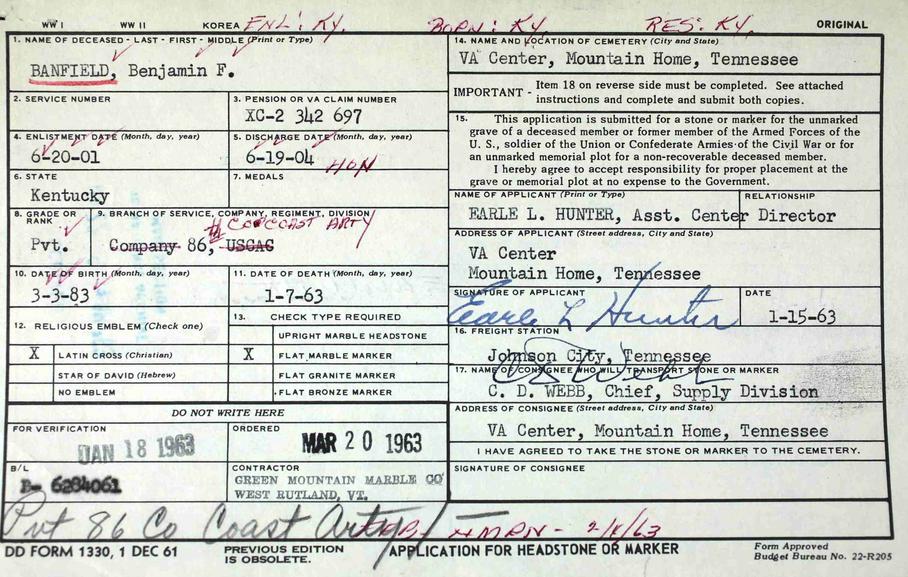 WW I WW II KOREA ENL: KY. BORN: KY. RES: KY. ORIGINAL
1. NAME OF DECEASED - LAST - FIRST - MIDDLE (Print or Type)
BANFIELD, Benjamin F.
2. SERVICE NUMBER
3. PENSION OR VA CLAIM NUMBER
XC-2 342 697
4. ENLISTMENT DATE (Month, day, year)
6-20-01
5. DISCHARGE DATE (Month, day, year)
6-19-04 HON
6. STATE
Kentucky
7. MEDALS
8. GRADE OR RANK
Pvt.
9. BRANCH OF SERVICE, COMPANY, REGIMENT, DIVISION
CO COAST ARTY
Company 86, USCAC
10. DATE OF BIRTH (Month, day, year)
3-3-83
11. DATE OF DEATH (Month, day, year)
1-7-63
12. RELIGIOUS EMBLEM (Check one)
X LATIN CROSS (Christian)
STAR OF DAVID (Hebrew)
NO EMBLEM
13. CHECK TYPE REQUIRED
UPRIGHT MARBLE HEADSTONE
X FLAT MARBLE MARKER
FLAT GRANITE MARKER
FLAT BRONZE MARKER
DO NOT WRITE HERE
FOR VERIFICATION
JAN 18 1963
ORDERED
MAR 20 1963
B/L
B- 6284061
CONTRACTOR
GREEN MOUNTAIN MARBLE CO
WEST RUTLAND, VT.
14. NAME AND LOCATION OF CEMETERY (City and State)
VA Center, Mountain Home, Tennessee
IMPORTANT - Item 18 on reverse side must be completed. See attached
instructions and complete and submit both copies.
15. This application is submitted for a stone or marker for the unmarked
grave of a deceased member or former member of the Armed Forces of the
U. S., soldier of the Union or Confederate Armies of the Civil War or for
an unmarked memorial plot for a non-recoverable deceased member.
I hereby agree to accept responsibility for proper placement at the
grave or memorial plot at no expense to the Government.
NAME OF APPLICANT (Print or Type) RELATIONSHIP
EARLE L. HUNTER, Asst. Center Director
ADDRESS OF APPLICANT (Street address, City and State)
VA Center
Mountain Home, Tennessee
SIGNATURE OF APPLICANT
Earle L Hunter
DATE
1-15-63
16. FREIGHT STATION
Johnson City, Tennessee
17. NAME OF CONSIGNEE WHO WILL TRANSPORT STONE OR MARKER
C D Webb
C. D. WEBB, Chief, Supply Division
ADDRESS OF CONSIGNEE (Street address, City and State)
VA Center, Mountain Home, Tennessee
I HAVE AGREED TO TAKE THE STONE OR MARKER TO THE CEMETERY.
SIGNATURE OF CONSIGNEE
Pvt 86 Co Coast Arty 2/8/63
DD FORM 1330, 1 DEC 61
PREVIOUS EDITION
IS OBSOLETE.
APPLICATION FOR HEADSTONE OR MARKER
Form Approved
Budget Bureau No. 22-R205